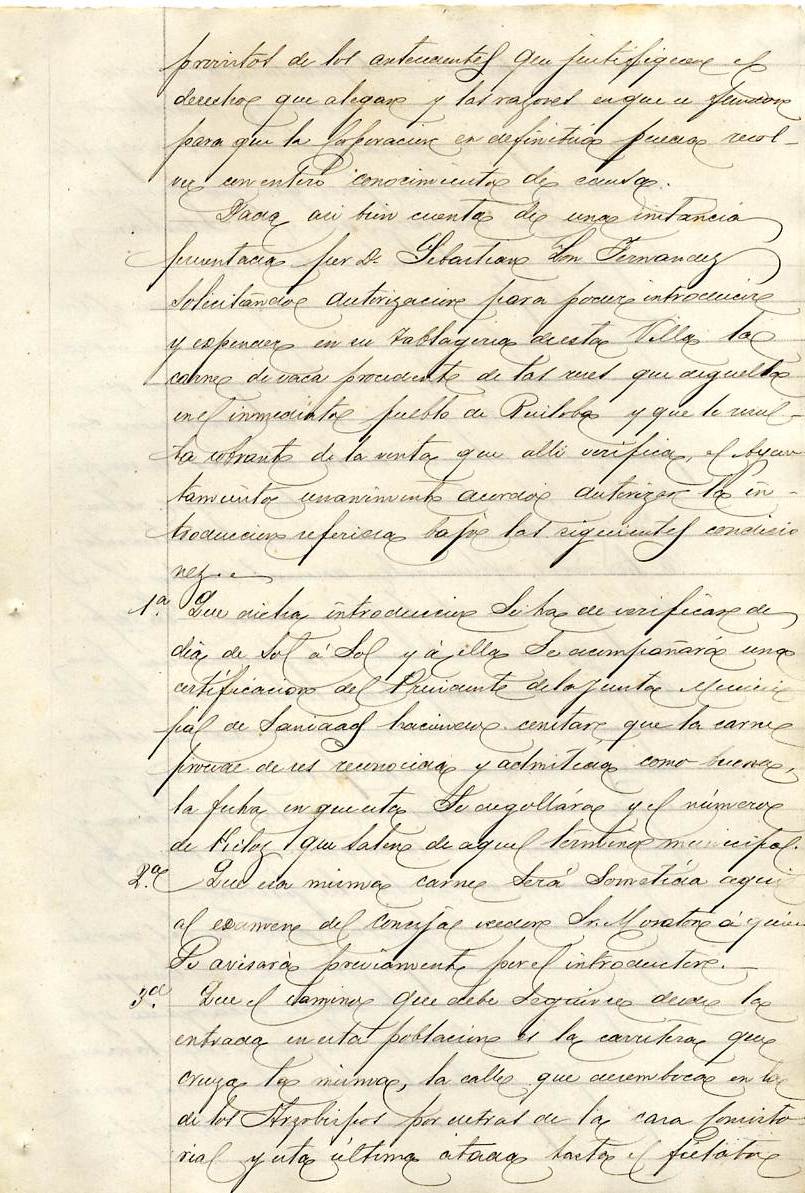 provistos de los antecedentes que justifiquen el
derecho que alegan y las razones en que se fundan
para que la Corporacion en definitiva pueda resol-
ver con entero conocimiento de causa.
Dada asi bien cuenta de una instancia
presentada por Dn Sebastian Fernandez
solicitando autorizacion para poder introducir
y espender en su tablageria de esta Villa la
carne de vaca procedente de las reses que deguella
en el inmediato pueblo de Ruiloba y que le resul-
ta sobrante de la venta que alli verifica, el Ayun
tamiento unanimemente acordó autorizar la in-
troduccion referida bajo las siguientes condicio
nes.
1.ª Que dicha introduccion se ha de verificar de
dia, de Sol á Sol y á ella se acompañará una
certificacion del Presidente de la Junta Munici
pal de Sanidad haciendo constar que la carne
procede de res reconocida y admitida como buena,
la fecha en que esta se degollára y el número
de kilos que salen de aquel término municipal.
2.ª Que esa misma carne será sometida aqui
al examen del Concejal veedor Sr. Moraton á quien
se avisará previamente por el introductor.
3.ª Que el camino que debe seguirse desde la
entrada en esta poblacion es la carretera que
cruza la misma, la calle que desemboca en la
de los Arzobispos por detras de la casa Consisto
rial y esta última citada hasta el fielato